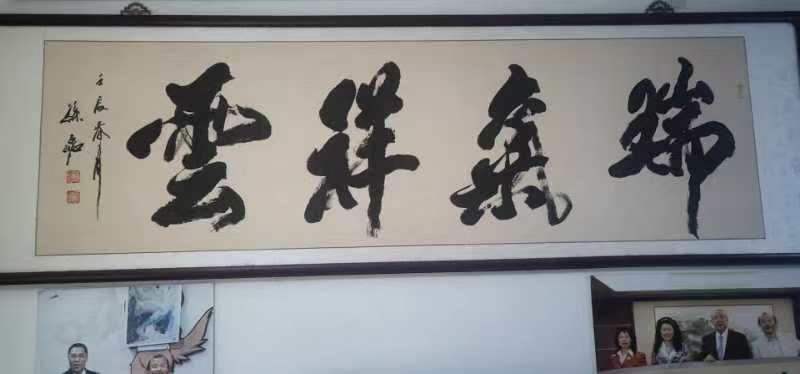 瑞氣祥雲
壬辰春月